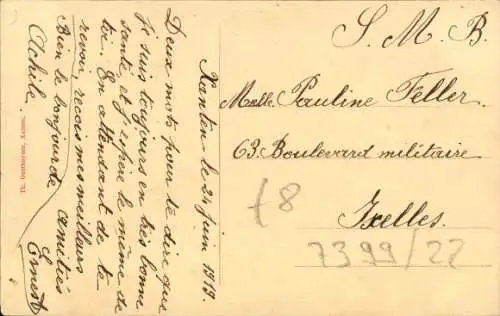 Xanten le 24 juin 1919.
Deux mots pour te dire que
je suis toujours en très bonne
santé et j'espère le même de
toi. En attendant de te
revoir, reçois mes meilleurs
amitiés
Ernest
Bien le bonjour de
Achile.
S. M. B.
Melle Pauline Feller
63 Boulevard militaire
Ixelles.
£8
7399/22